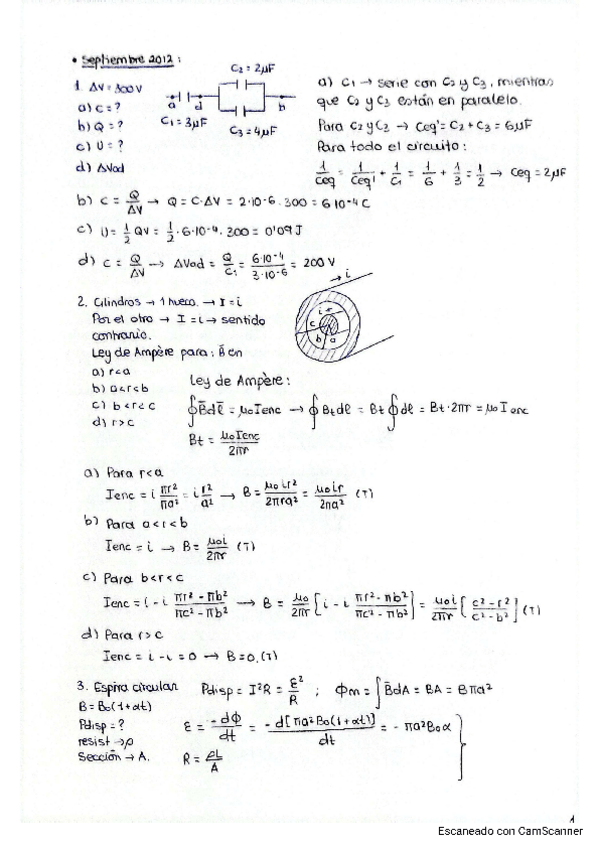 • Septiembre 2012:
1. ΔV = 300V
a) C = ?
b) Q = ?
c) U = ?
d) ΔVad
C2 = 2μF
a d b
C1 = 3μF
C3 = 4μF
a) C1 → serie con C2 y C3, mientras
que C2 y C3 están en paralelo.
Para C2 y C3 → Ceq' = C2 + C3 = 6μF
Para todo el circuito:
1/Ceq = 1/Ceq' + 1/C1 = 1/6 + 1/3 = 1/2 → Ceq = 2μF
b) C = Q/ΔV → Q = C·ΔV = 2·10-6·300 = 6·10-4 C
c) U = 1/2 QV = 1/2 · 6·10-4 · 300 = 0'09 J
d) C = Q/ΔV → ΔVad = Q/C1 = 6·10-4/3·10-6 = 200 V
2. Cilindros → 1 hueco → I = i
Por el otro → I = i → sentido
contrario.
Ley de Ampère para: B̄ en
a) r<a
b) a<r<b
c) b<r<c
d) r>c
i
i
c
b a
Ley de Ampère:
∮B̄dl̄ = μ0 Ienc → ∮Bt dl = Bt ∮dl = Bt·2πr = μ0 Ienc
Bt = μ0 Ienc/2πr
a) Para r<a
Ienc = i πr²/πa² = i r²/a² → B = μ0 i r²/2πra² = μ0 i r/2πa² (T)
b) Para a<r<b
Ienc = i → B = μ0 i/2πr (T)
c) Para b<r<c
Ienc = i - i πr²-πb²/πc²-πb² → B = μ0/2πr [i - i πr²-πb²/πc²-πb²] = μ0 i/2πr [c²-r²/c²-b²] (T)
d) Para r>c
Ienc = i - i = 0 → B = 0 (T)
3. Espira circular
B = B0(1+αt)
Pdisp = ?
resist → ρ
Sección → A.
Pdisp = I²R = ε²/R ; Φm = ∫B̄dA = BA = Bπa²
ε = -dΦ/dt = -d[πa²B0(1+αt)]/dt = -πa²B0α
R = ρL/A
1
Escaneado con CamScanner